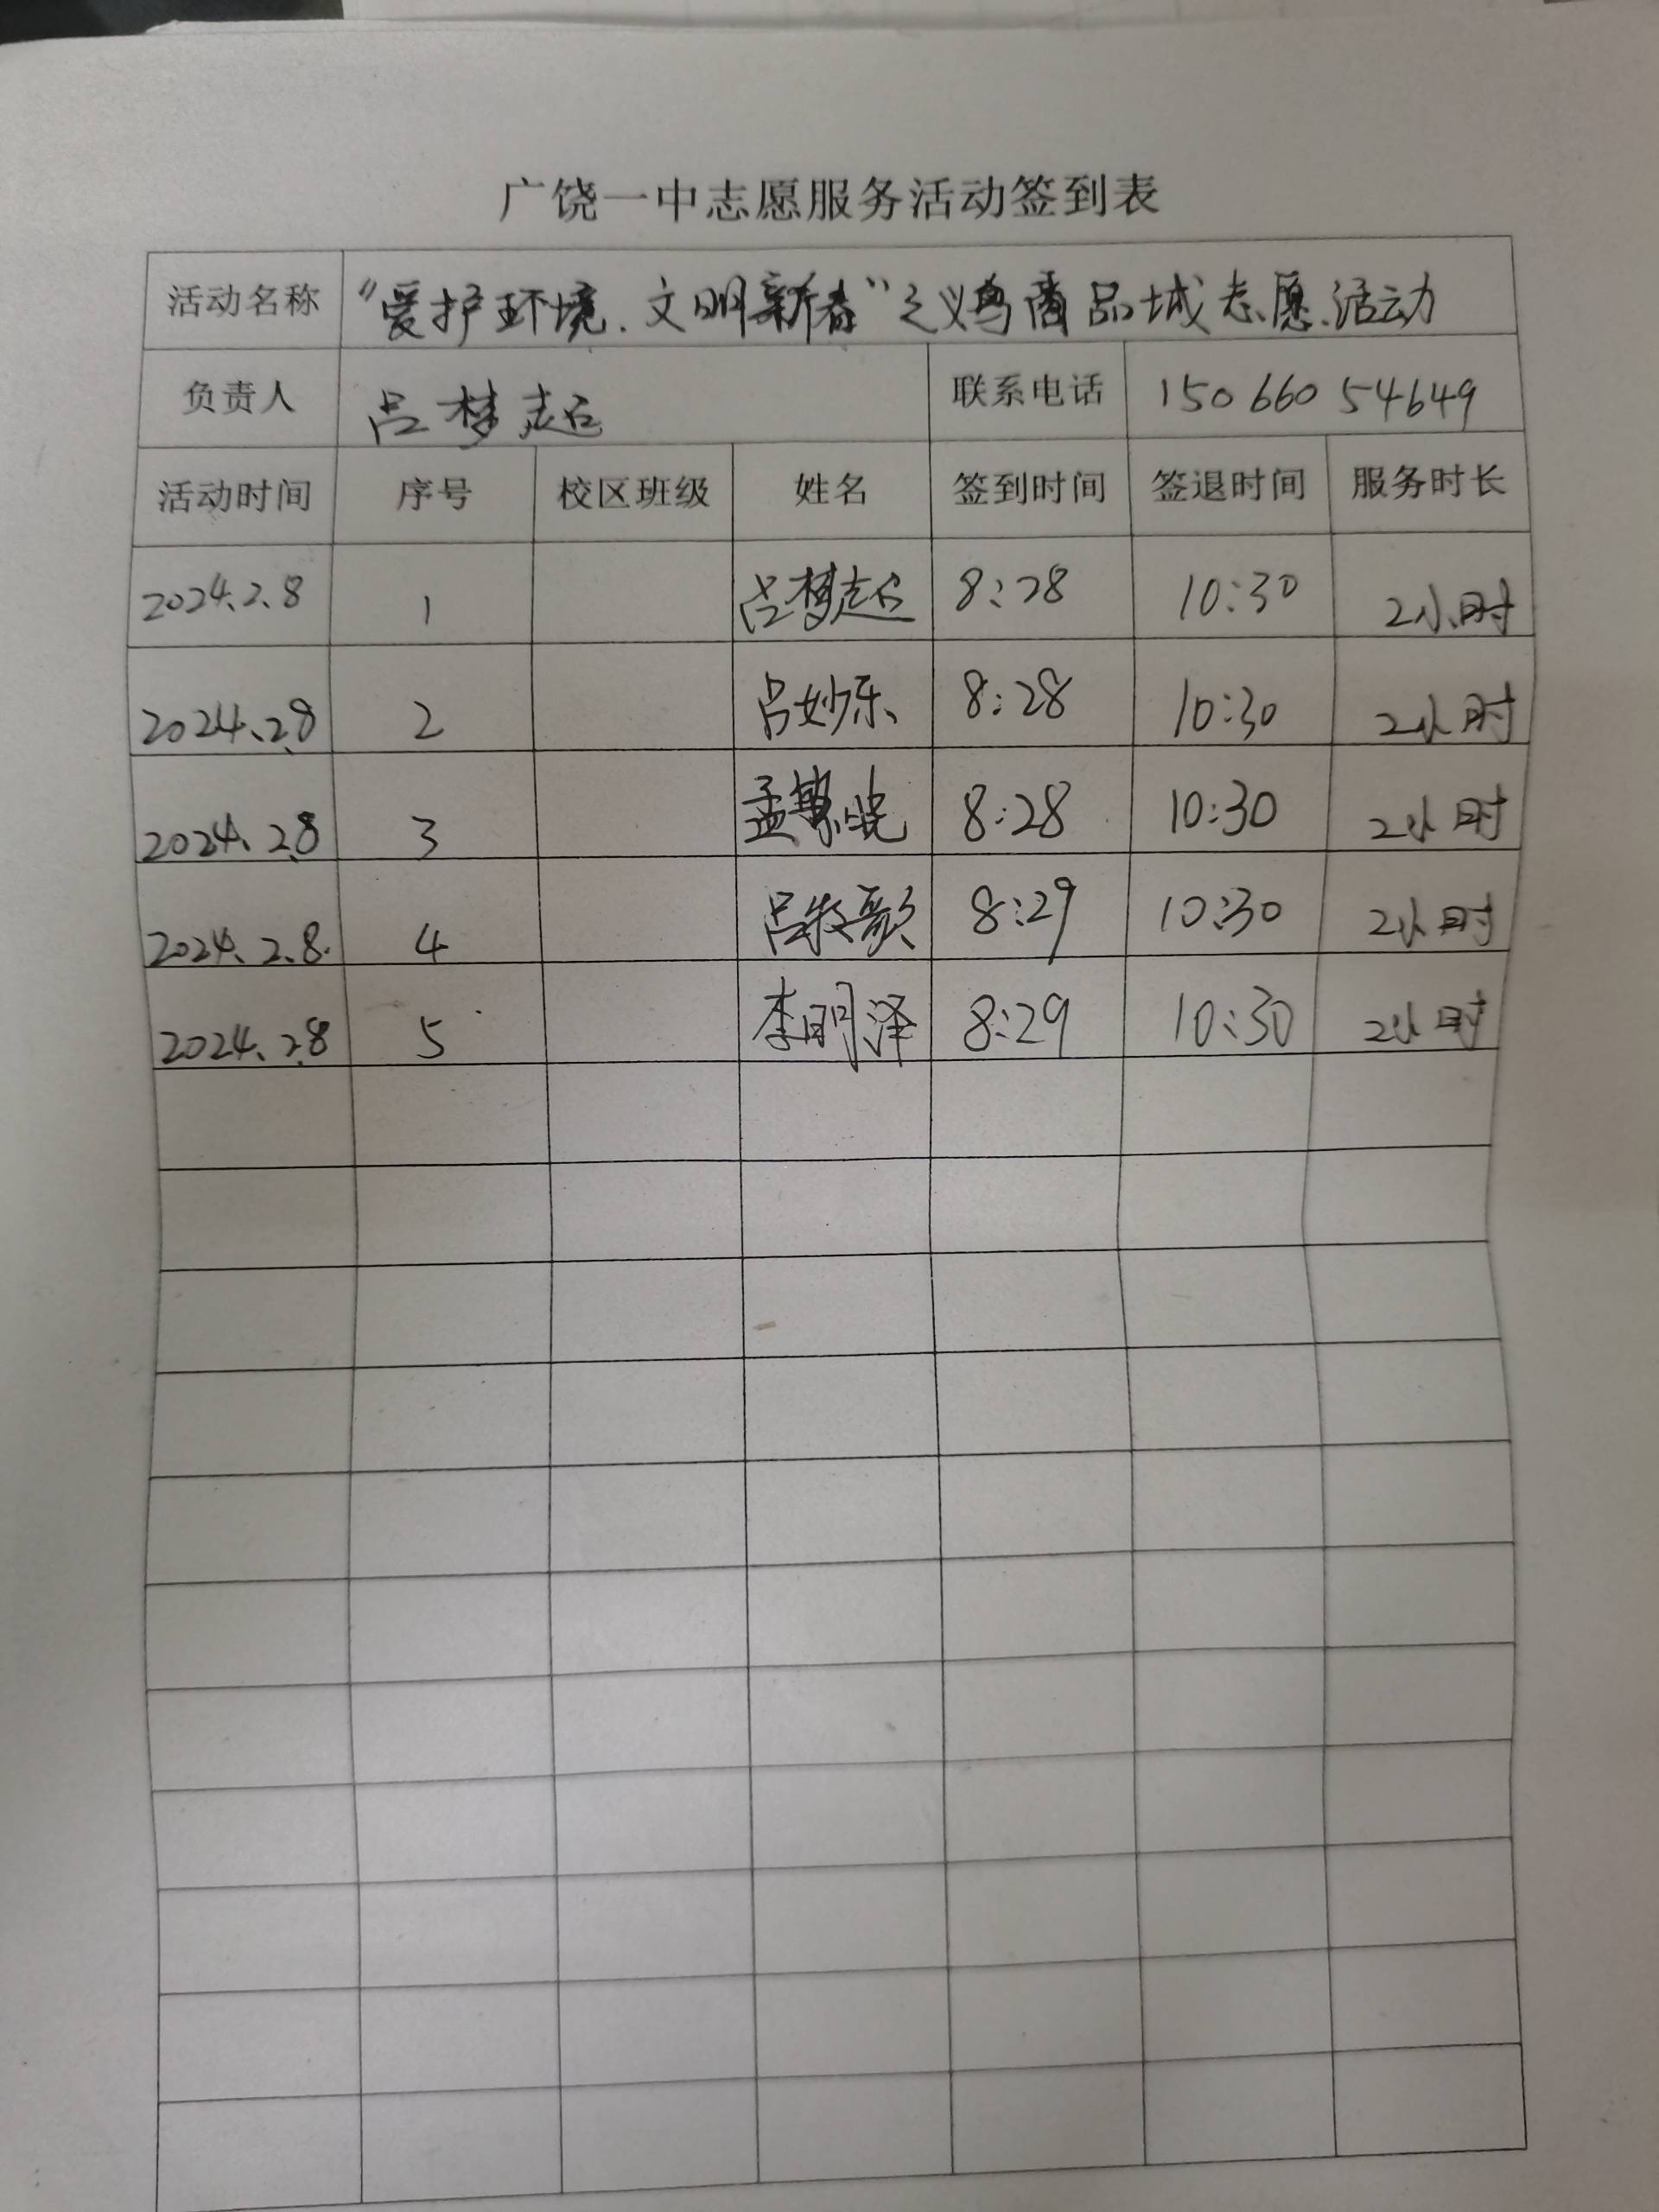 广饶一中志愿服务活动签到表
活动名称 “爱护环境、文明新春”之义乌商品城志愿活动
负责人 吕梦超 联系电话 15066054649
活动时间 序号 校区班级 姓名 签到时间 签退时间 服务时长
2024.2.8 1 吕梦超 8:28 10:30 2小时
2024.2.8 2 吕妙乐 8:28 10:30 2小时
2024.2.8 3 孟 8:28 10:30 2小时
2024.2.8. 4 吕牧歌 8:29 10:30 2小时
2024.2.8 5 李明泽 8:29 10:30 2小时